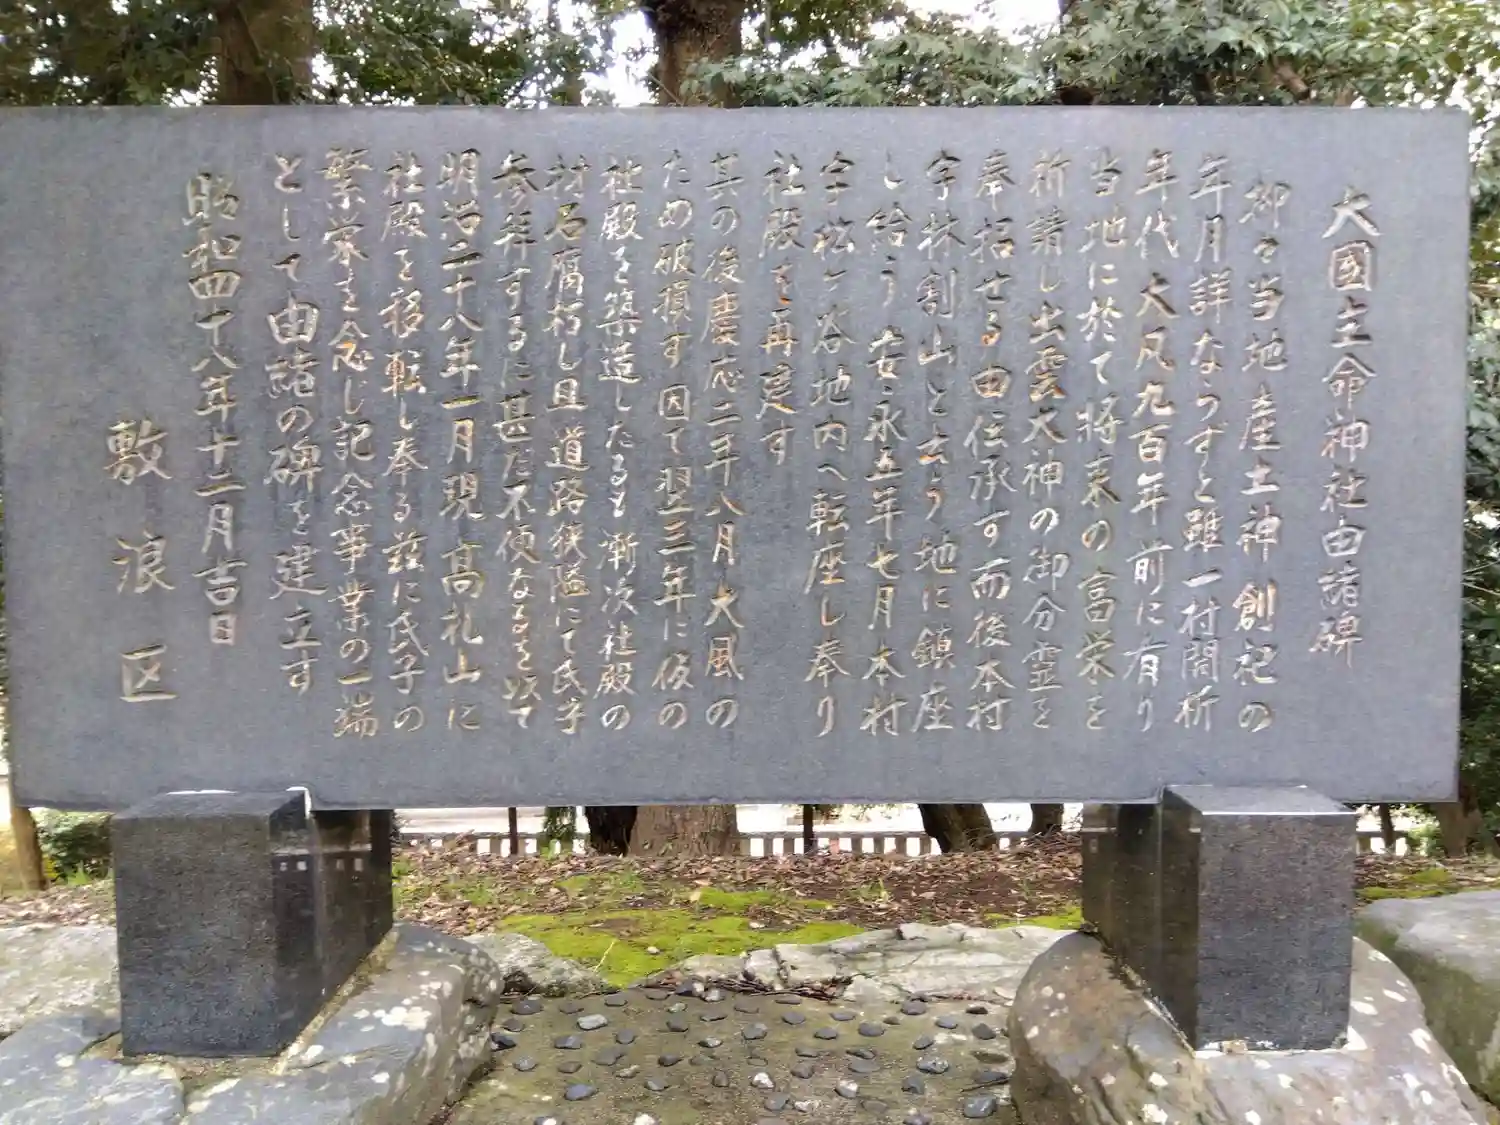 大國主命神社由諸碑
抑々当地産土神創祀の
年月詳ならずと雖一村開祈
年代大凡九百年前に有り
当地に於て将来の富栄を
祈請し出雲大神の御分霊を
奉招せる由伝承す而後本村
字林割山と云う地に鎮座
し給う安永五年七月本村
字松ヶ谷地内へ転座し奉り
社殿を再建す
其の後慶応二年八月大風の
ため破損す因て翌三年に仮の
社殿を築造したるも漸次社殿の
材名腐朽し且道路狭隘にて氏子
参拝するに甚だ不便なるを以て
明治二十八年一月現高札山に
社殿を移転し奉る茲に氏子の
繁栄を念じ記念事業の一端
として由諸の碑を建立す
昭和四十八年十二月吉日
敷浪区